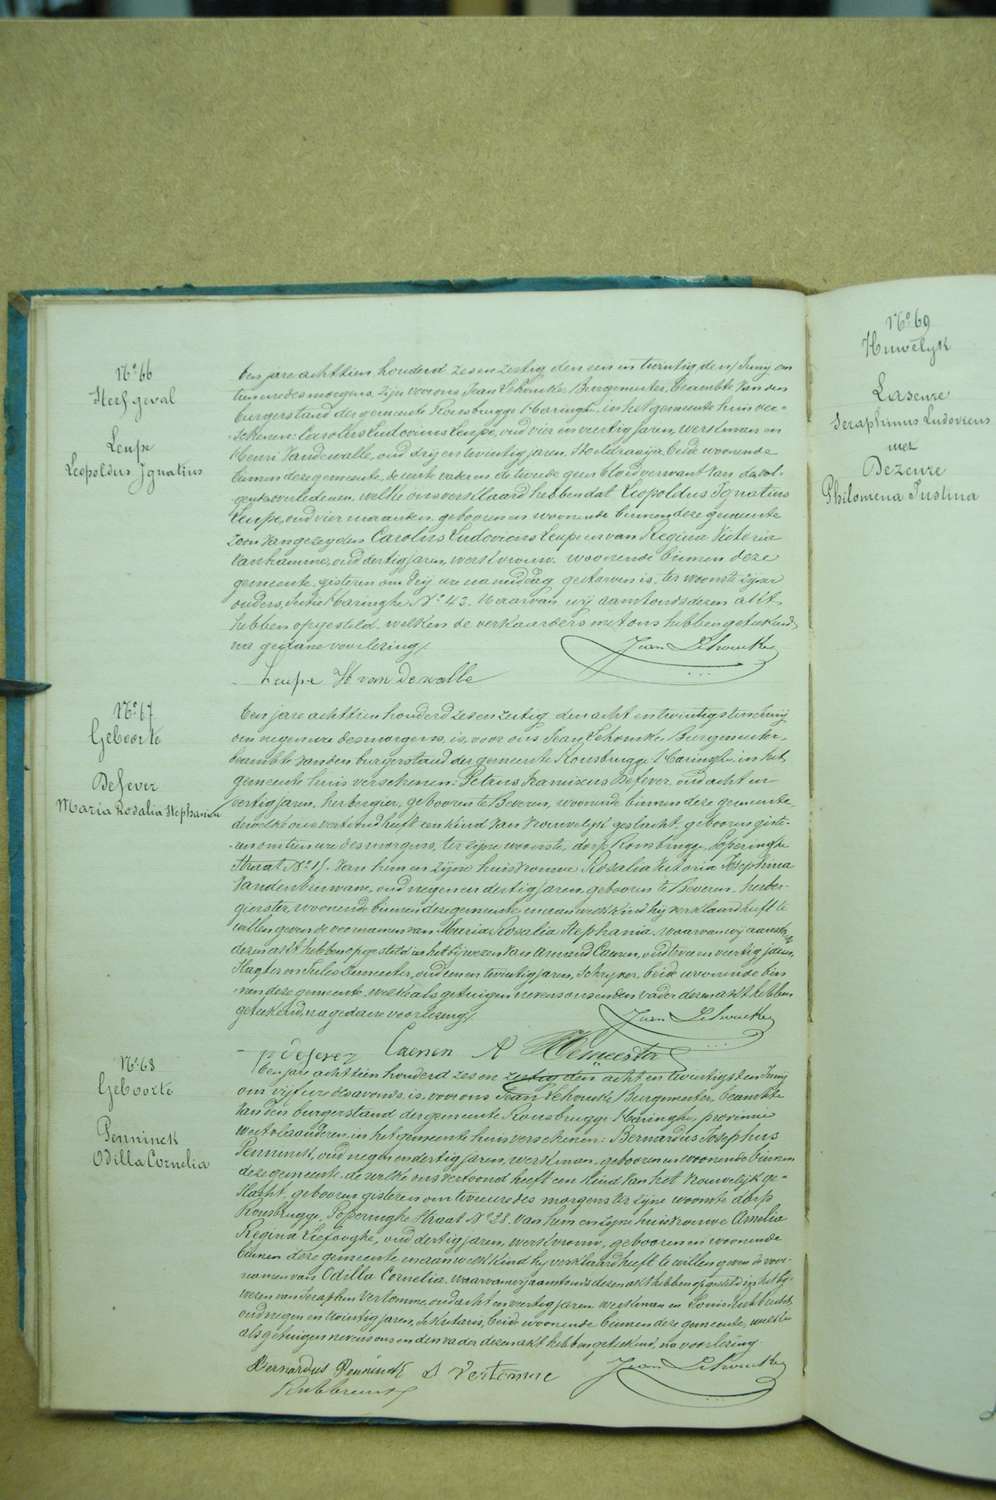 No 66
Sterfgeval
Leupe
Leopoldus Ignatius
Ten jare achttien honderd zes en zestig den een en twintig den Juny om
tien ure des morgens, zijn voor ons Jean Lehoucke Burgemeester, beambte van den
burgerstand der gemeente Rousbrugge Haringhe, in het gemeente huis ver-
schenen: Carolus Ludovicus Leupe, oud vier en veertig jaren, werkman en
Henri Vandewalle, oud drij en twintig jaren, Stoeldraaijer, beide woonende
binnen deze gemeente, de eerste vader en de tweede geen bloedverwant van de vol-
gende overledenen, welke ons verklaard hebben dat Leopoldus Ignatius
Leupe, oud vier maanden, gebooren en woonende binnen deze gemeente
zoon van gezeyden Carolus Ludovicus Leupe en van Regina Victoria
Vanhamme, oud dertig jaren, werkvrouw, woonende binnen deze
gemeente, gisteren om drij ure namiddag gestorven is, ter woonste zijner
ouders, sectie Haringhe No 43. Waarvan wij aanstonds dezen akt
hebben opgesteld, welken de verklaarders met ons hebben geteekend,
na gedane voorlezing.
Jean Lehoucke
Leupe H vandewalle
No 67
Geboorte
Defever
Maria Rosalia Stephania
Ten jare achttien honderd zes en zestig, den acht en twintigsten Juny
om negen ure des morgens, is, voor ons Jean Lehoucke Burgemeester,
beambte van den burgerstand der gemeente Rousbrugge Haringhe, in het
gemeente huis verschenen: Petrus Franciscus Defever, oud acht en
veertig jaren, herbergier, gebooren te Beveren, woonende binnen deze gemeente
dewelke ons vertoond heeft een kind van vrouwelijk geslacht, gebooren giste-
ren om tien ure des morgens, ter zijne woonste, dorp Rousbrugge, Poperinghe
Straat No 15. van hem en zijne huisvrouwe Rosalia Victoria Josephina
Vandenberwane, oud negen en dertig jaren, gebooren te Beveren, herber-
gierster, woonende binnen deze gemeente, en aan welk kind hij verklaard heeft te
willen geven de voornamen van Maria Rosalia Stephania. waarvan wij aanstonds
dezen akt hebben opgesteld in het bijwezen van Amand Caenen, oud
jaren,
Slagter en Demeester, oud een en twintig jaren, Schryver, beide woonende bin-
nen deze gemeente, welke als getuigen nevens ons en den vader dezen akt hebben
geteekend, na gedane voorlezing.
Jean Lehoucke
p defever Caenen A Demeester
No 68
Geboorte
Penninck
Odilla Cornelia
Ten jare achttien honderd zes en zestig den acht en twintigsten Juny
om vijf ure des avonds, is, voor ons Jean Lehoucke Burgemeester, beambte
van den burgerstand der gemeente Rousbrugge Haringhe, provincie
westvlaanderen, in het gemeente huis verschenen: Bernardus Josephus
Penninck, oud negen en dertig jaren, werkman, gebooren en woonende binnen
deze gemeente, dewelke ons vertoond heeft een kind van het vrouwelijk ge-
slacht, gebooren gisteren om twee ure des morgens ter zijne woonste dorp
Rousbrugge, Poperinghe Straat No 28. van hem en zijne huisvrouwe Amelia
Regina Liefooghe, oud dertig jaren, werkvrouw, gebooren en woonende
binnen deze gemeente en aan welk kind hij verklaard heeft te willen geven de voor-
namen van Odilla Cornelia. waarvan wij aanstonds dezen akt hebben opgesteld in het bij-
wezen van Seraphin Verlomme, oud acht en veertig jaren werkman en Louis Rubbrecht,
oud negen en twintig jaren, Sekretaris, beide woonende binnen deze gemeente, welke
als getuigen nevens ons en den vader dezen akt hebben geteekend, na voorlezing.
Bernardus Penninck S Verlomme Jean Lehoucke
Rubbrecht
No 69
Huwelyk
Laseure
Seraphinus Ludovicus
met
Dezeure
Philomena Justina